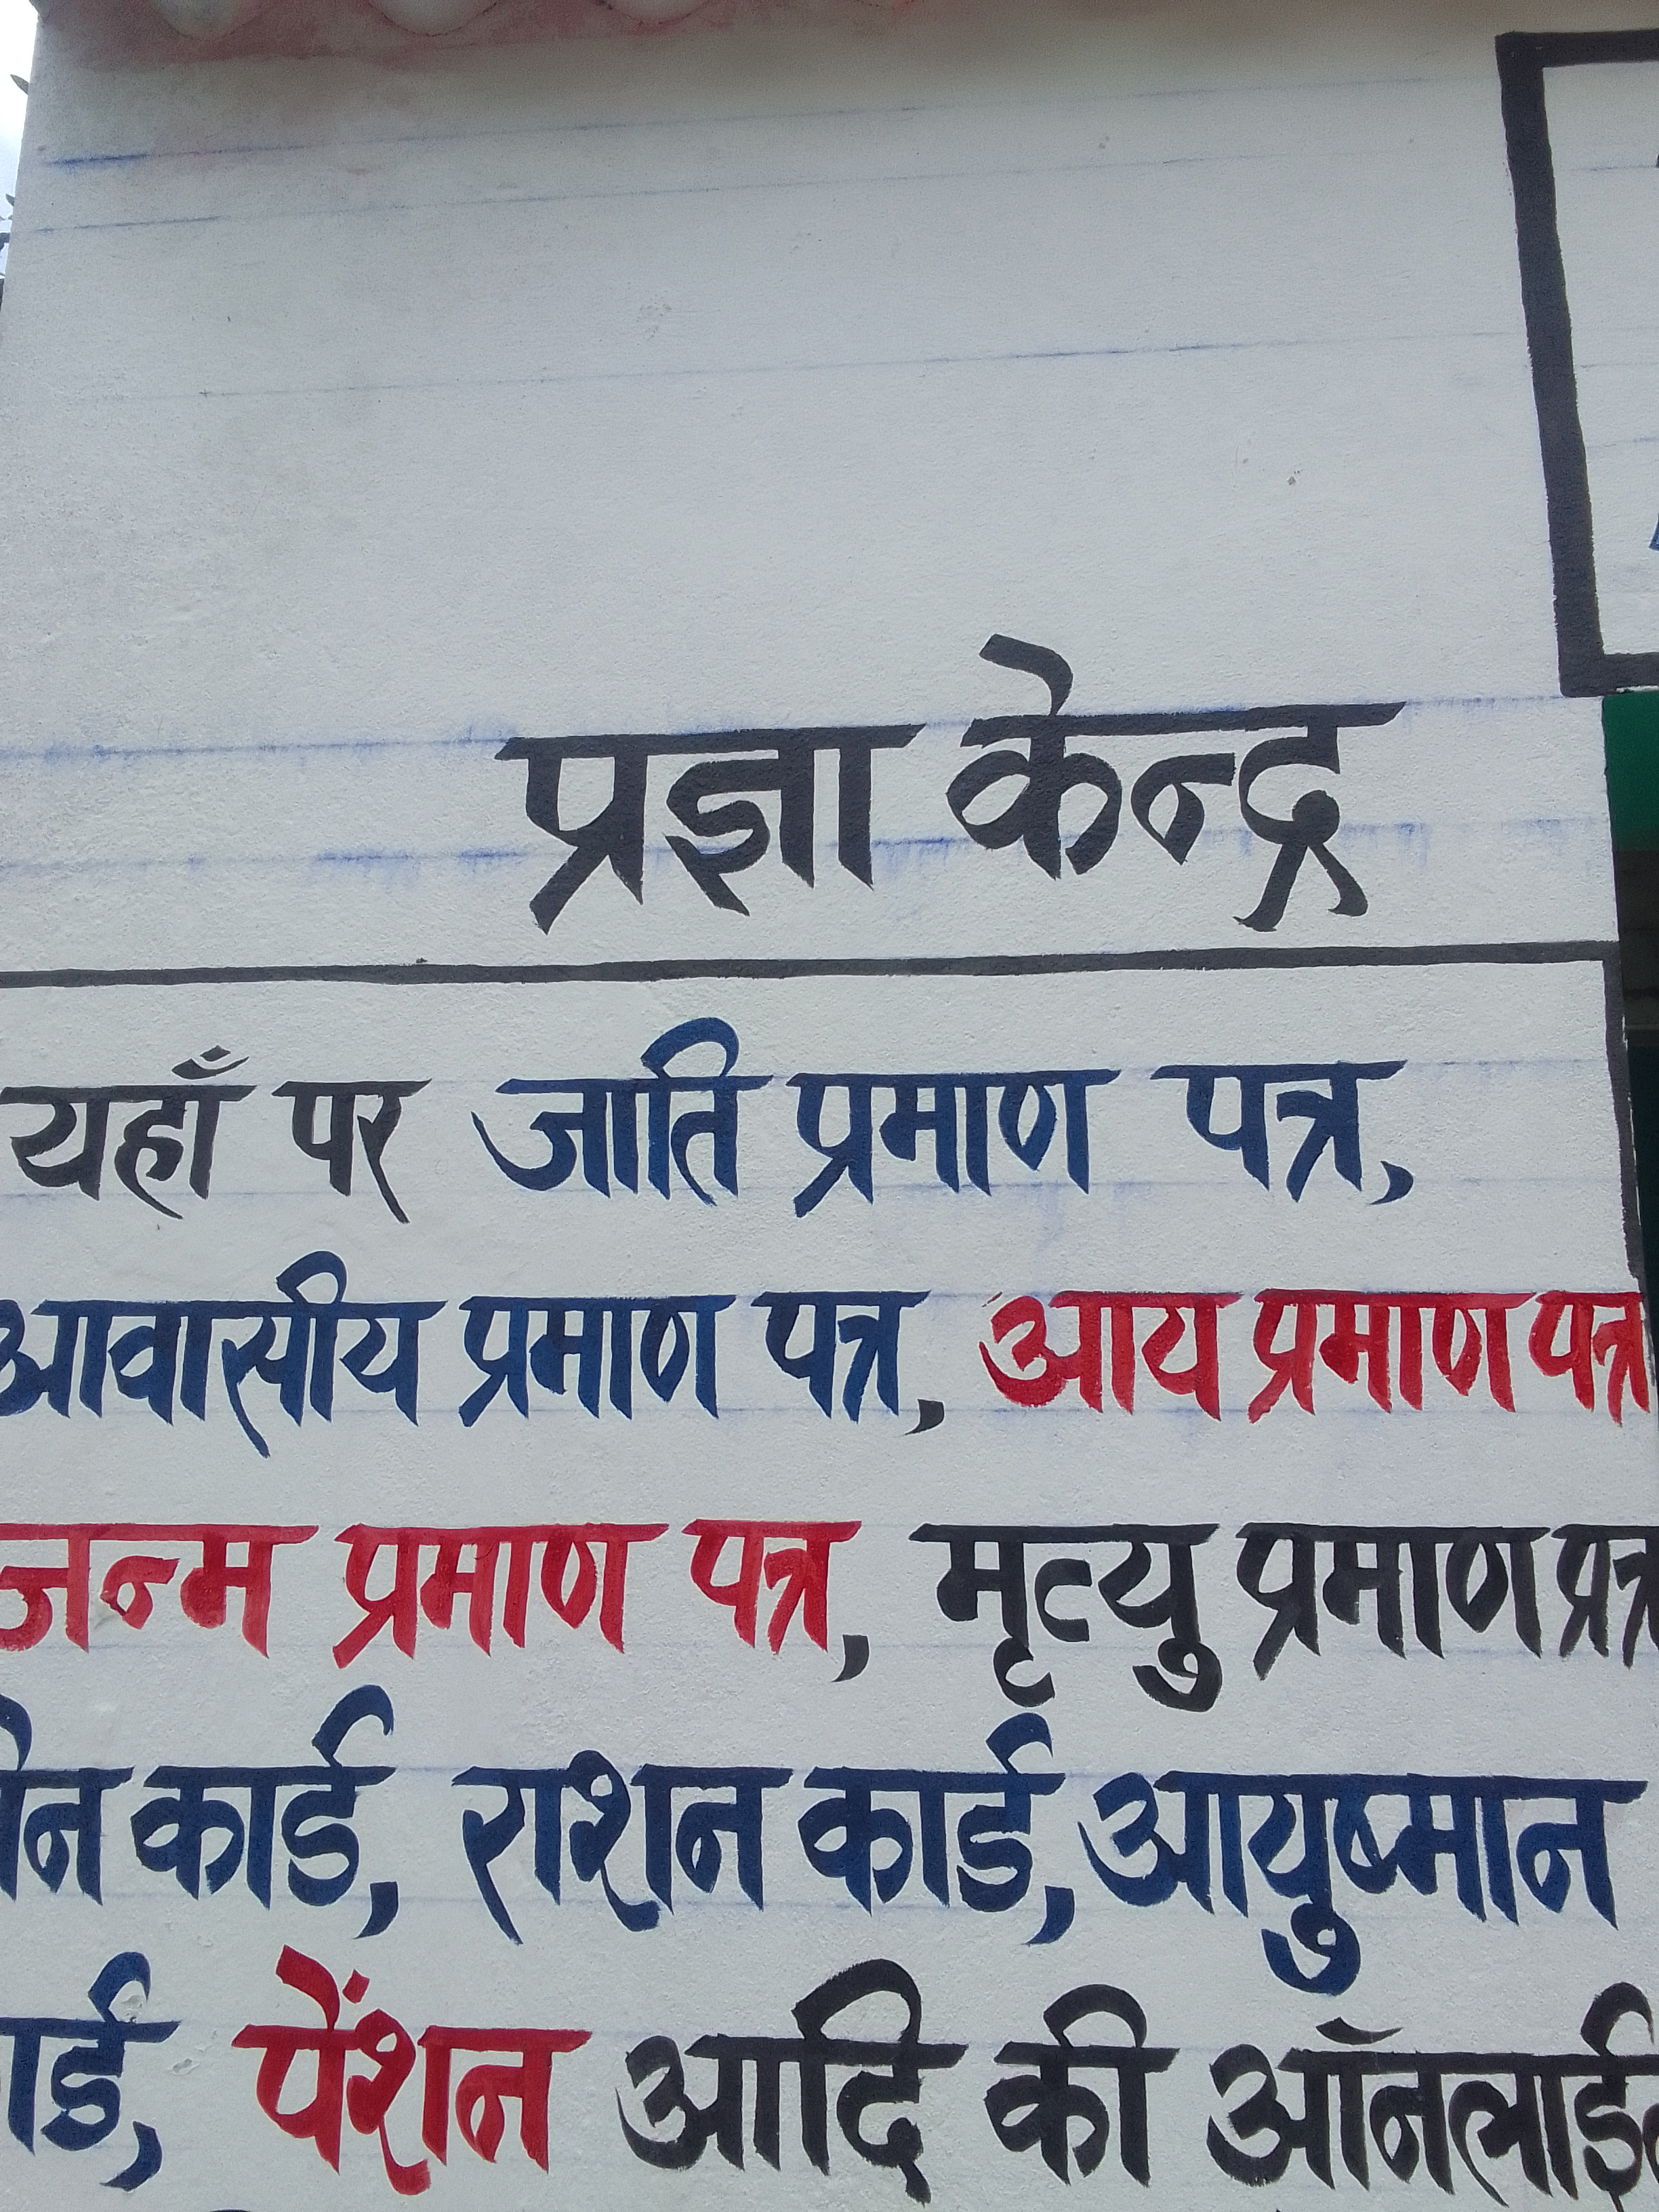 प्रज्ञा केन्द्र
यहाँ पर जाति प्रमाण पत्र,
आवासीय प्रमाण पत्र, आय प्रमाण पत्र
जन्म प्रमाण पत्र, मृत्यु प्रमाण प्रत्र
कार्ड, राशन कार्ड, आयुष्मान
पेंशन आदि की